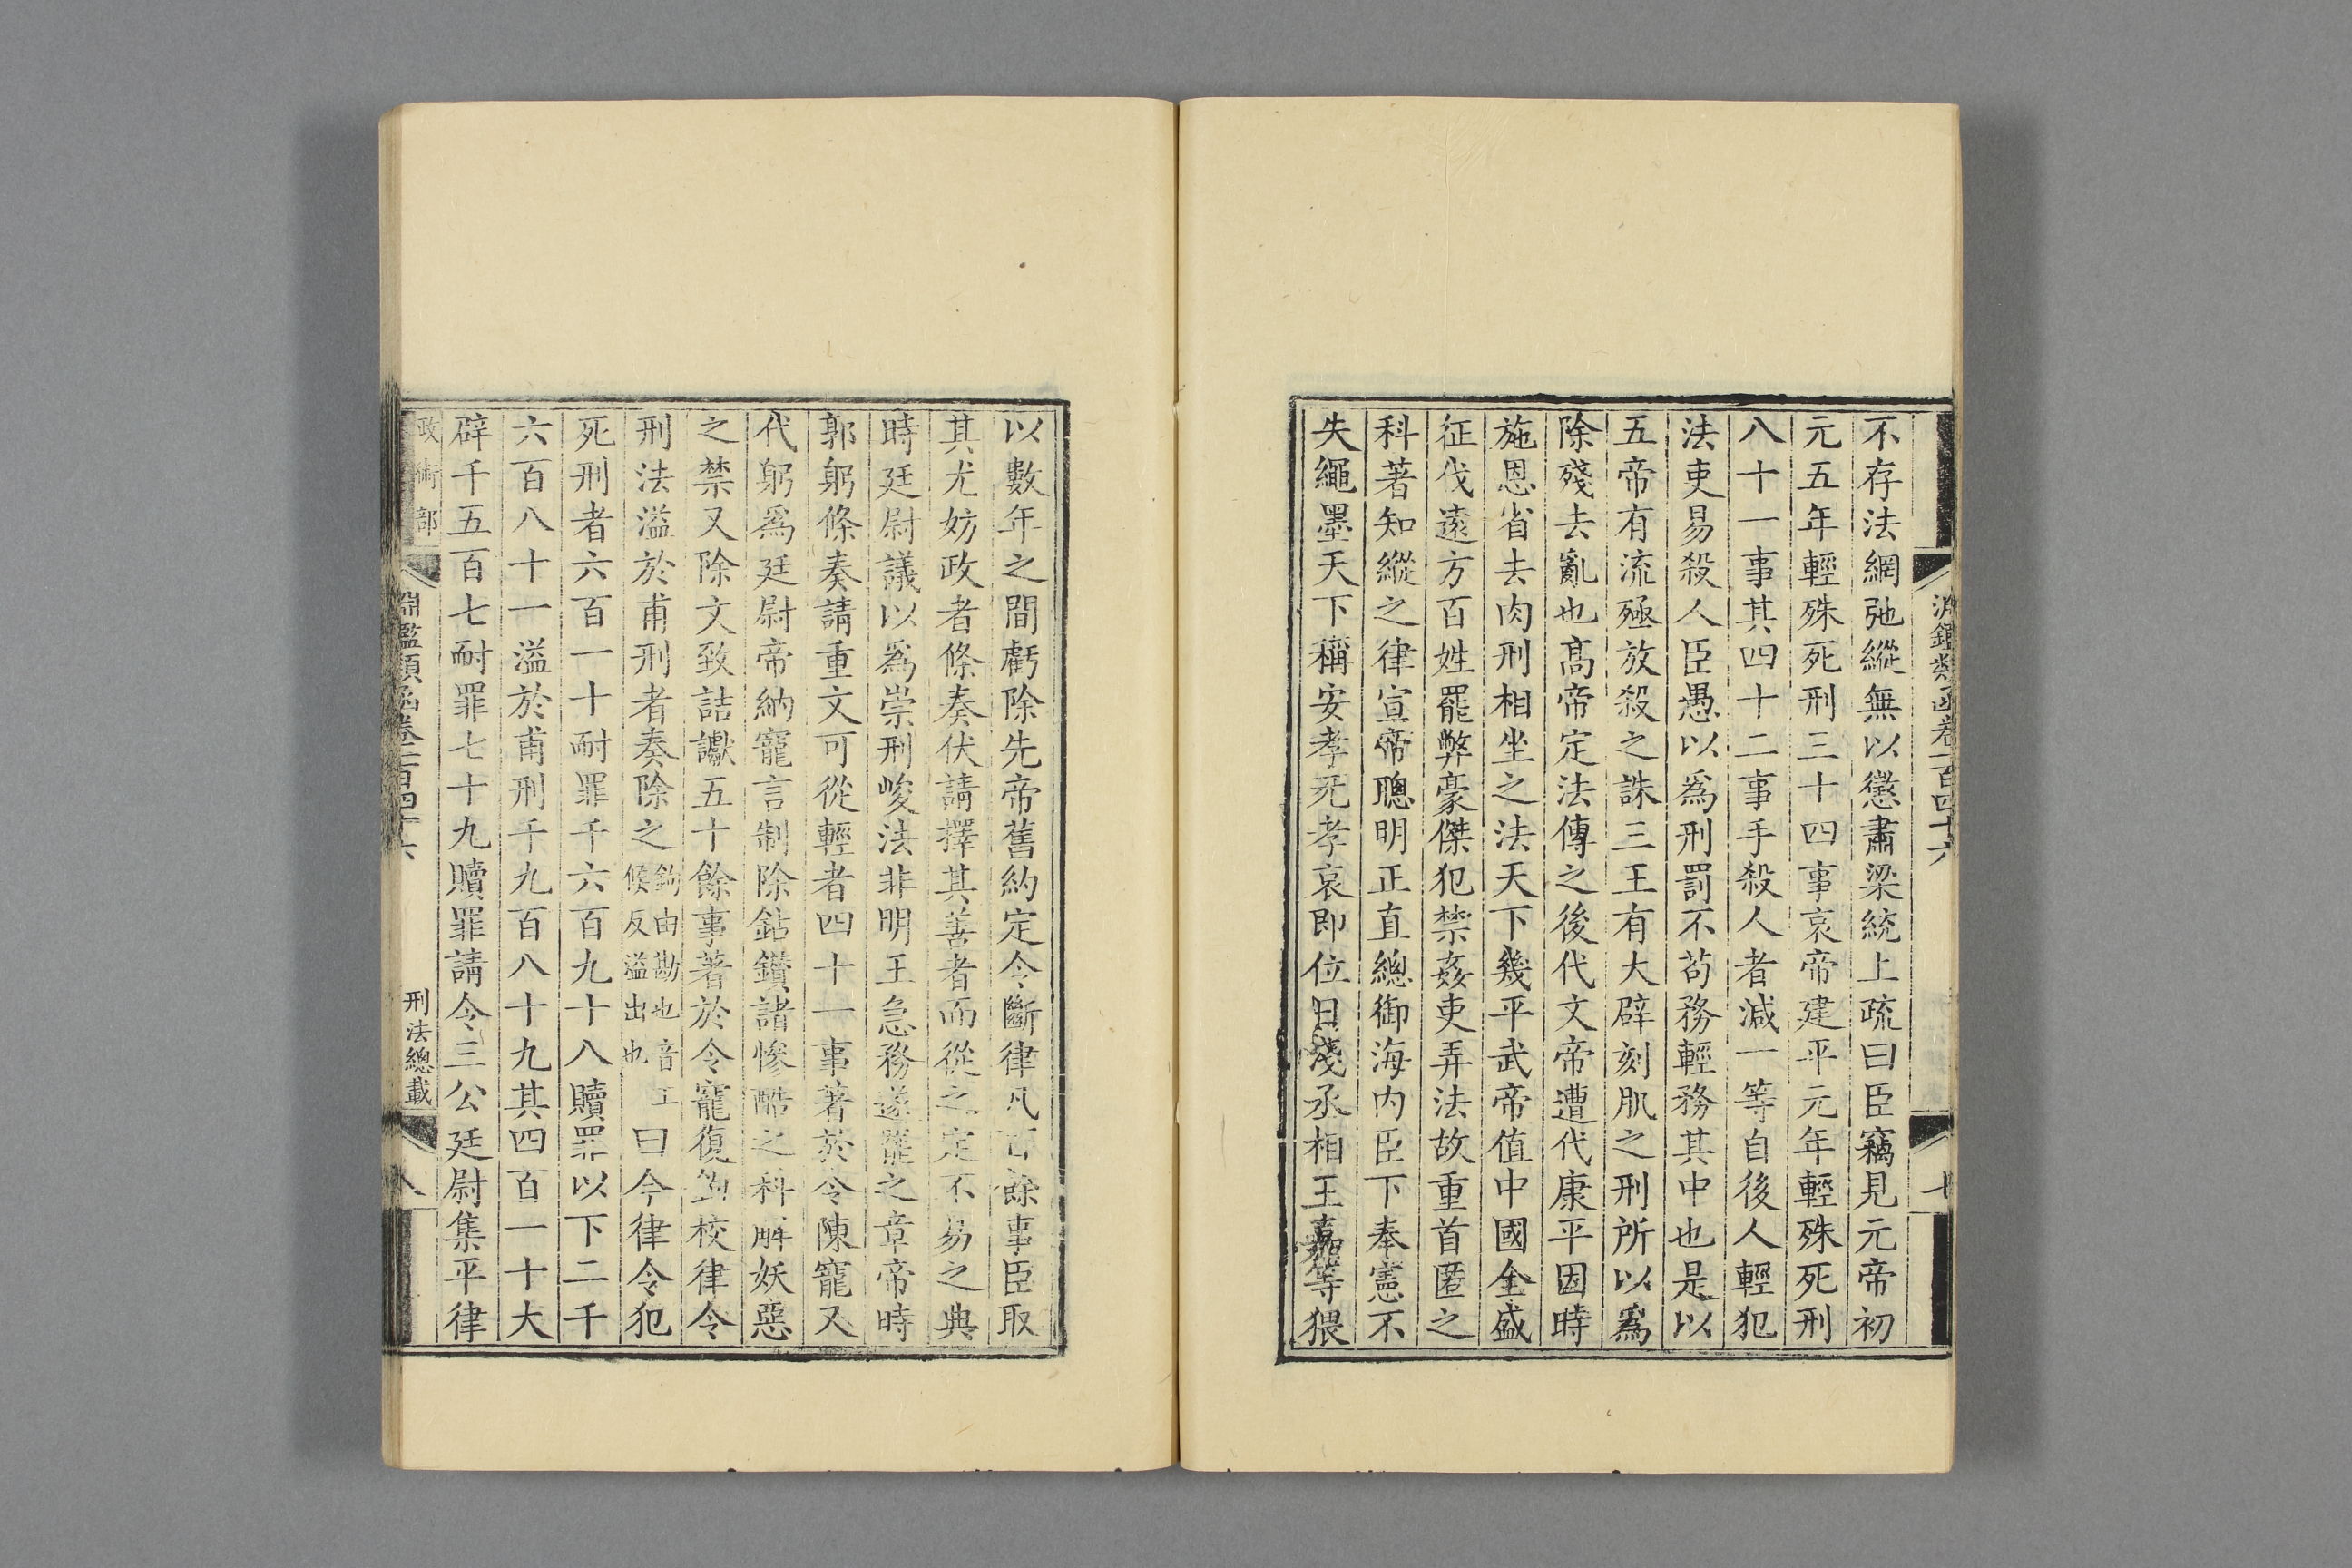 淵鑑類函卷一百四十六
七
不存法網弛縱無以懲肅梁統上疏曰臣竊見元帝初
元五年輕殊死刑三十四事哀帝建平元年輕殊死刑
八十一事其四十二事手殺人者減一等自後人輕犯
法吏易殺人臣愚以爲刑罰不苟務輕務其中也是以
五帝有流殛放殺之誅三王有大辟刻肌之刑所以爲
除殘去亂也高帝定法傳之後代文帝遭代康平因時
施恩省去肉刑相坐之法天下幾平武帝值中國全盛
征伐遠方百姓罷弊豪傑犯禁姦吏弄法故重首匿之
科著知縱之律宣帝聰明正直總御海內臣下奉憲不
失繩墨天下稱安孝元孝哀即位日淺丞相王嘉等猥
以數年之間虧除先帝舊約定令斷律凡百餘事臣取
其尤妨政者條奏伏請擇其善者而從之定不易之典
時廷尉議以爲崇刑峻法非明王急務遂罷之章帝時
郭躬條奏請重文可從輕者四十一事著於令陳寵又
代躬爲廷尉帝納寵言制除鉆鑽諸慘酷之科解妖惡
之禁又除文致詰讞五十餘事著於令寵復鉤校律令
刑法溢於甫刑者奏除之鉤由勘也音工候反溢出也曰今律令犯
死刑者六百一十耐罪千六百九十八贖罪以下二千
六百八十一溢於甫刑千九百八十九其四百一十大
辟千五百七耐罪七十九贖罪請令三公廷尉集平律
政術部
淵鑑類函卷一百四十六
刑法總載
八